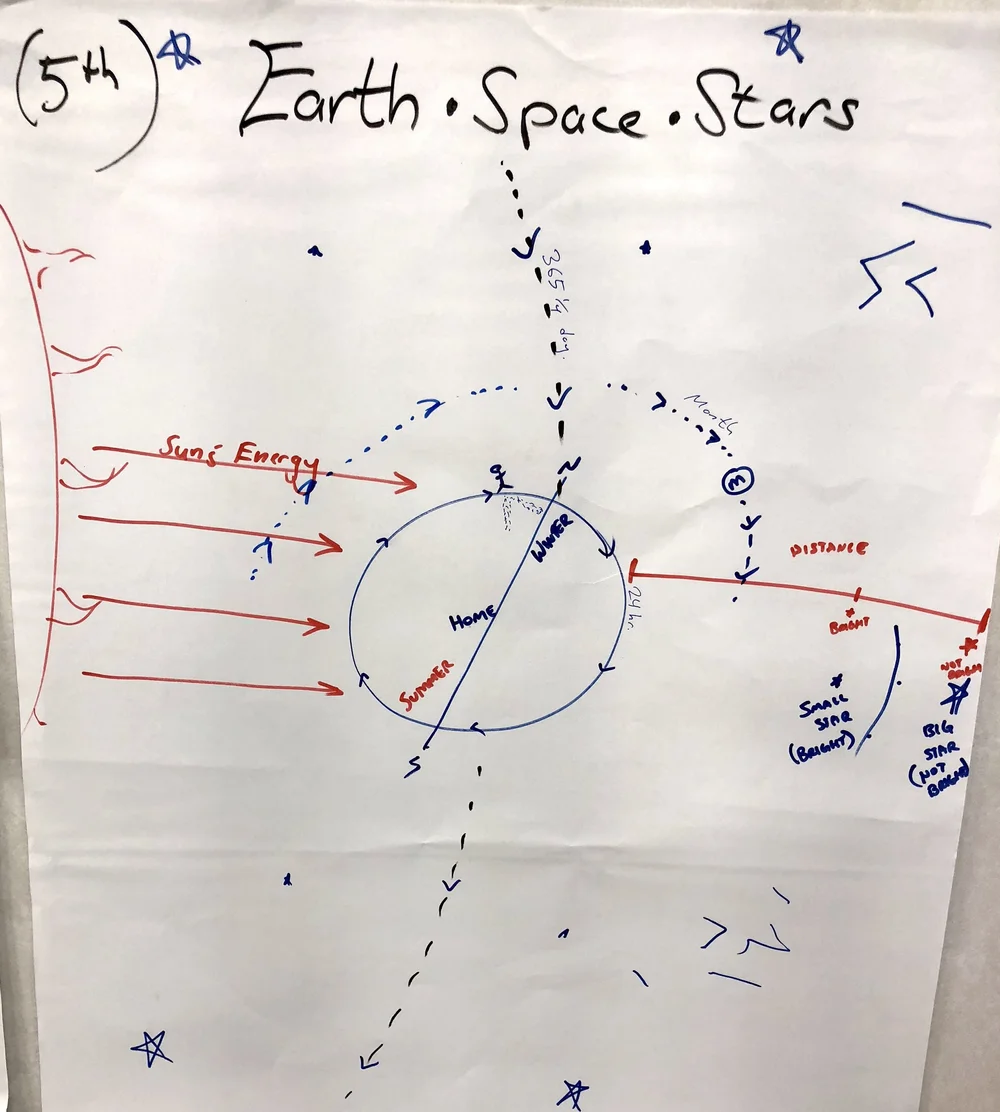 (5th)
Earth · Space · Stars
365 ¼ day.
Month
Sun's Energy
M
N
WINTER
DISTANCE
24 hr.
HOME
BRIGHT
SUMMER
NOT
BRIGHT
SMALL
STAR
(BRIGHT)
BIG
STAR
(NOT
BRIGHT)
S